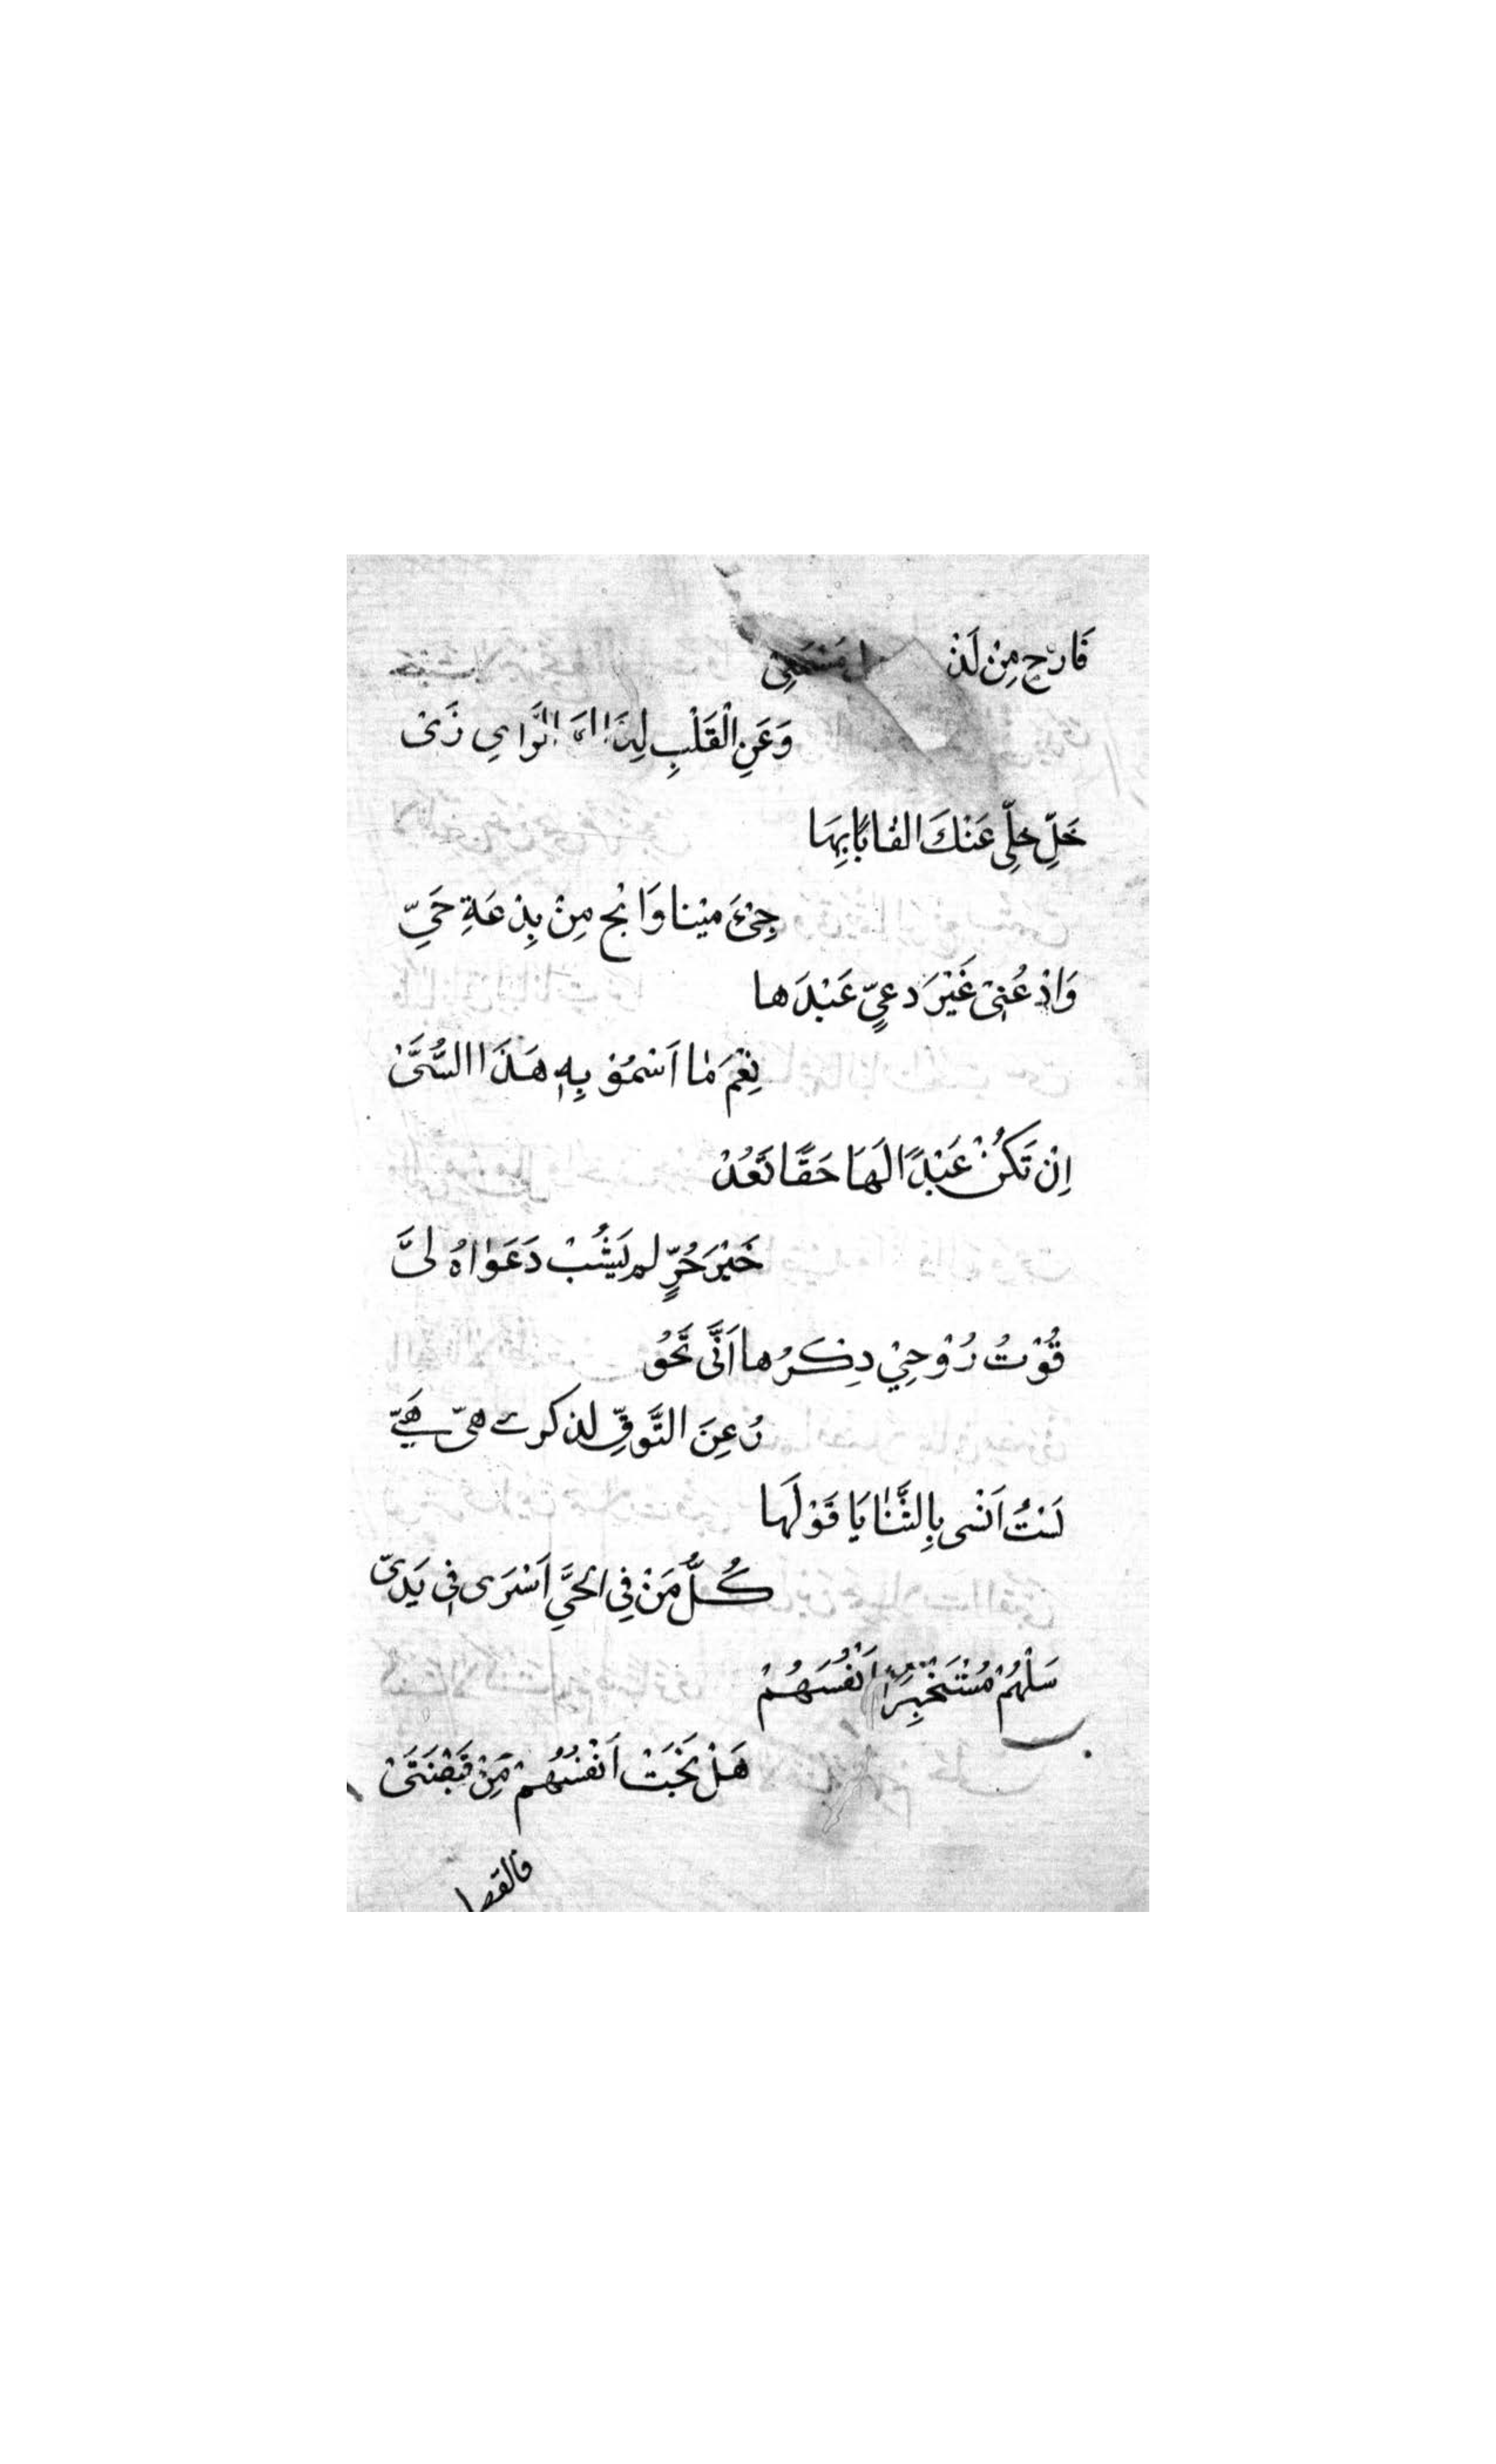 فَارِحِ مِنْ لَذْ مَسْمَعِىْ
وَعَنِ الْقَلْبِ الرَّا زَىْ
خَلِّ خِلِّى عَنْكَ القَابًا بِهَا
جِىْءَ مَيْنا وَانْجُ مِنْ بِدْعَةِ حَيِّ
وَادْعُنِىْ غَيْرَ دعِيٍّ عَبْدَها
نِعْمَ مٰا اَسْمُوْ بِهٖ هَذَا السُّمَىْ
اِنْ تَكُنْ عَبْدًا لَهَا حَقًّا تَعُدْ
خَيْرَ حُرٍّ لم يَشُبْ دَعَوٰاهُ لىَّ
قُوْتُ رُوْحِيْ ذِكْرُها اَنَّى تَحُوْ
رُ عِنَ التَّوقِّ لذكرے هىّ هَىّ
لَسْتُ اَنْسى بِالثَّنَايَا قَوْلَهَا
كُلُّ مَنْ فِي الحَيِّ اَسْرَى فِى يَدَىّ
سَلْهُمْ مُسْتَخْبِرًا اَنْفُسَهُمْ
هَلْ نَجَتْ اَنْفُسُهُمْ مِنْ قَبْضَتَىْ
فالقضا